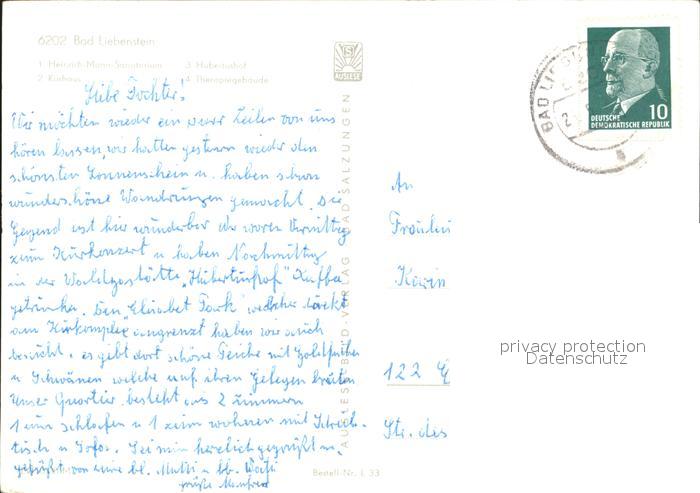 6202 Bad Liebenstein
1 Heinrich-Mann-Sanatorium 3 Hubertushof
2 Kurhaus 4 Therapiegebäude
AUSLESE
Liebe Tochter!
Wir möchten wieder ein paar Zeilen von uns
hören lassen, wir hatten gestern wieder den
schönsten Sonnenschein u. haben schon
wunderschöne Wandrungen gemacht. Die
Gegend ist hier wunderbar wir waren Vormittag
zum Kurkonzert u haben Nachmittag
in der Waldgaststätte „Hubertushof" Kaffee
getrunken. Den Elisabet Park welcher direkt
am Kurkomplex angrenzt haben wir auch
besucht. es gibt dort schöne Teiche mit Goldfischen
u Schwänen welche auf ihren Gelegen brüten
unser Quartier besteht aus 2 Zimmern
1 zum schlafen u 1 zum wohnen mit Schreib-
tisch u Sofa. Sei nun herzlich gegrüßt u.
geküßt von deine lb. Mutti u lb. Vati
grüße Manfred
AUSLESE-BILD-VERLAG BAD SALZUNGEN
Bestell-Nr. L 33
BAD LIEBENST
DEUTSCHE
DEMOKRATISCHE REPUBLIK
10
An
Fräulein
Karin
122 E
Str. des
privacy protection
Datenschutz